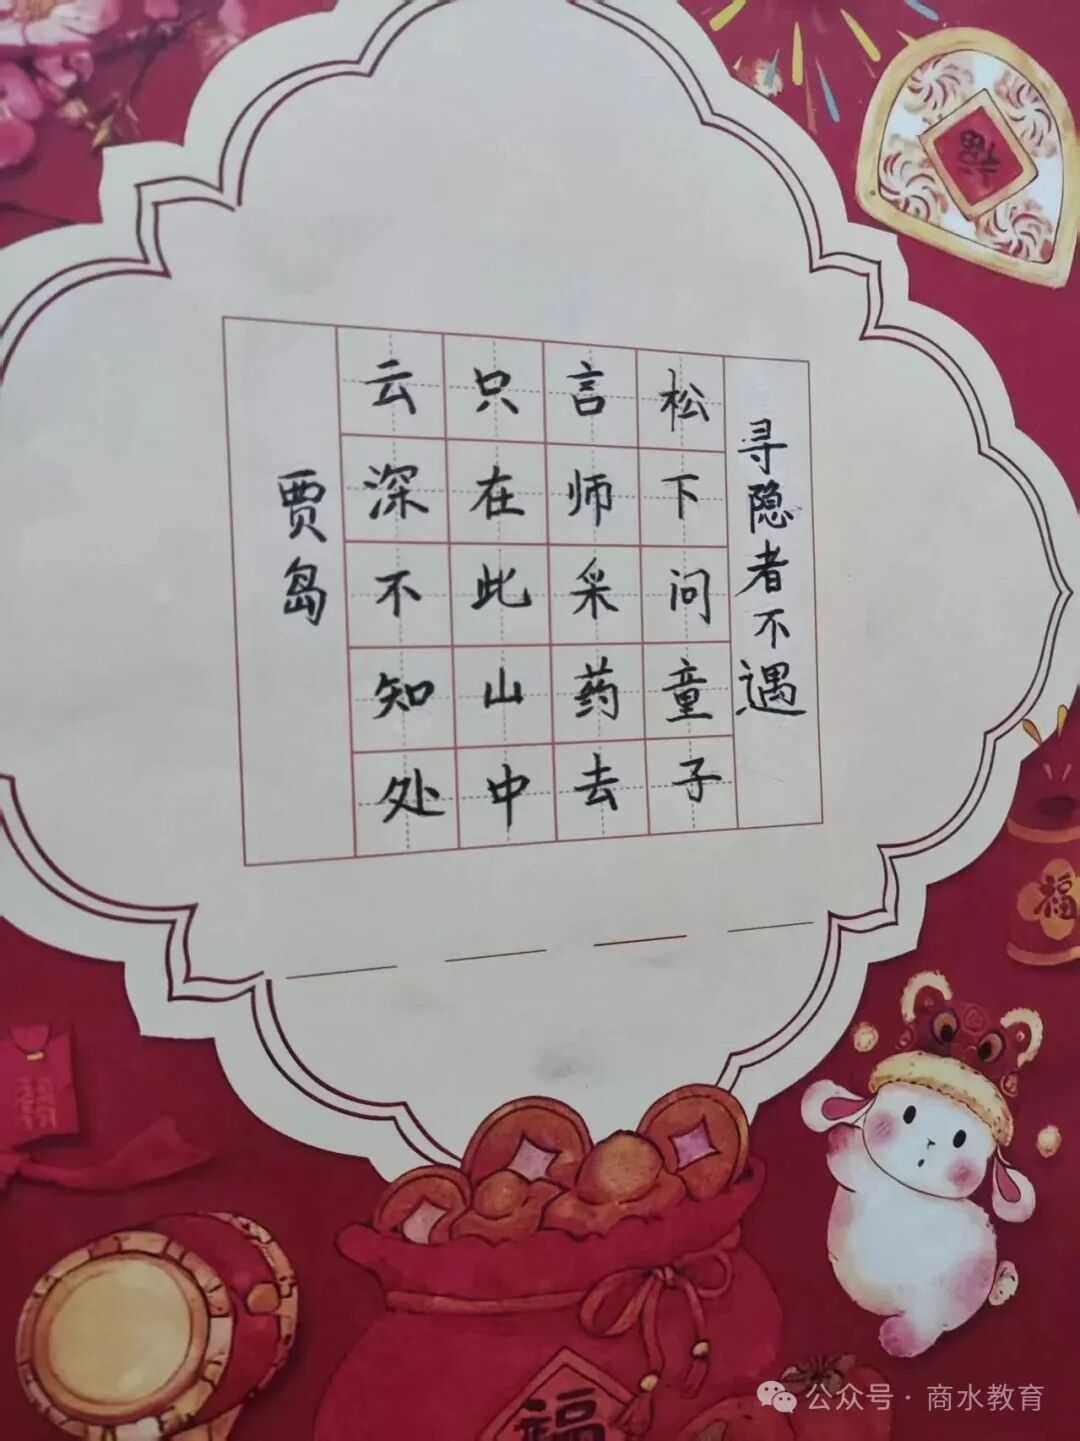 寻隐者不遇
松下问童子
言师采药去
只在此山中
云深不知处
贾岛
福
福
福
公众号·商水教育